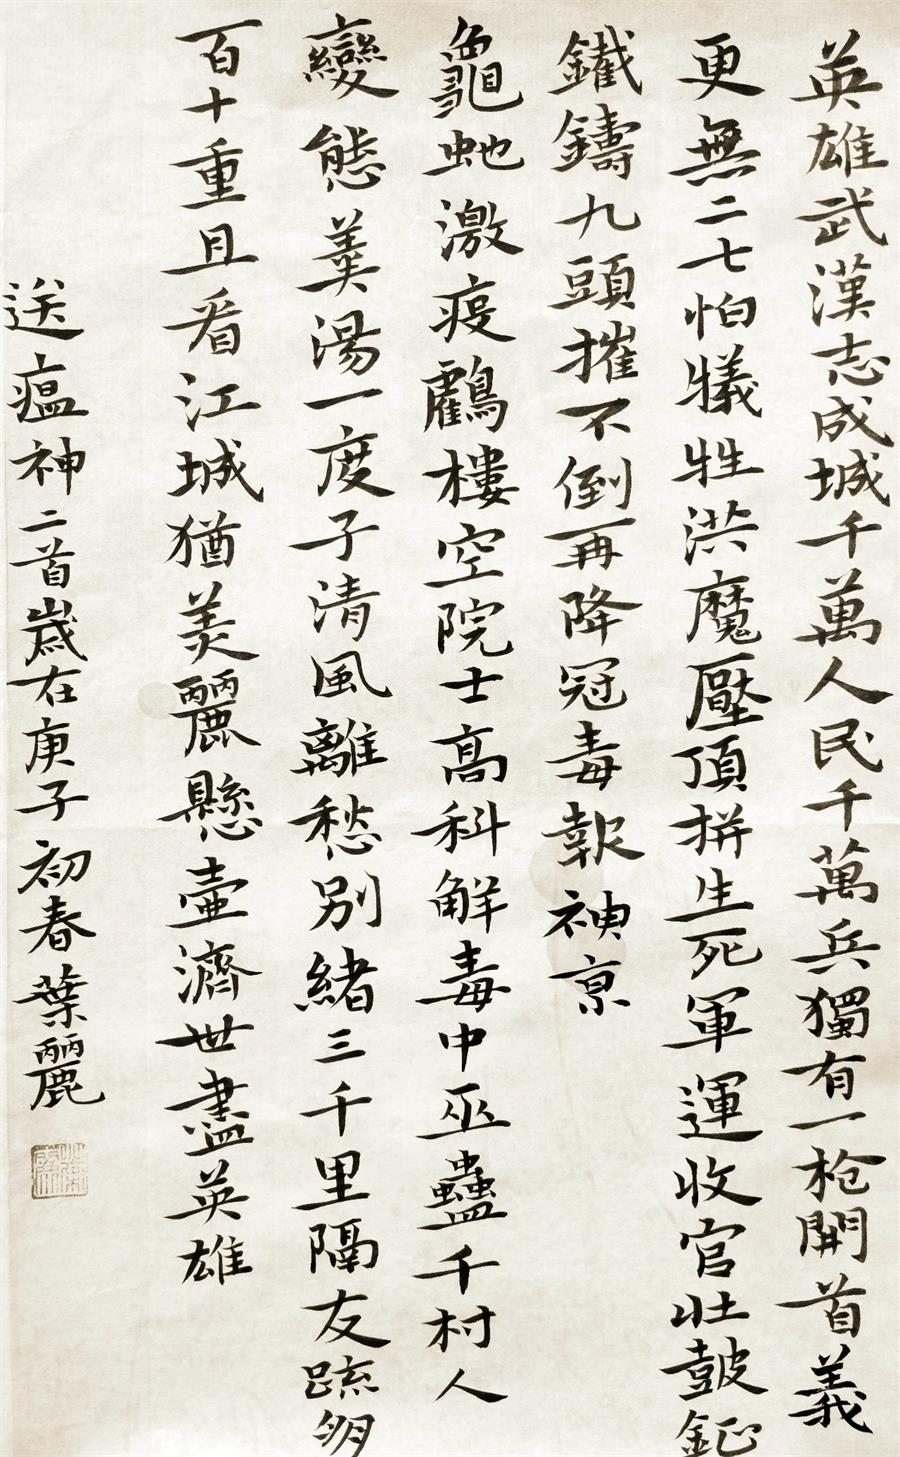 英雄武漢志成城千萬人民千萬兵獨有一枪開首義
更無二七怕犧牲洪魔壓頂拼生死軍運收官壯鼓鉦
鐵鑄九頭摧不倒再降冠毒報神京
龜虵激疫鸖樓空院士高科解毒中巫蠱千村人
變態羹湯一度子清風離愁別緒三千里隔友疏朋
百十重且看江城猶美麗懸壺濟世盡英雄
送瘟神二首歲在庚子初春葉麗